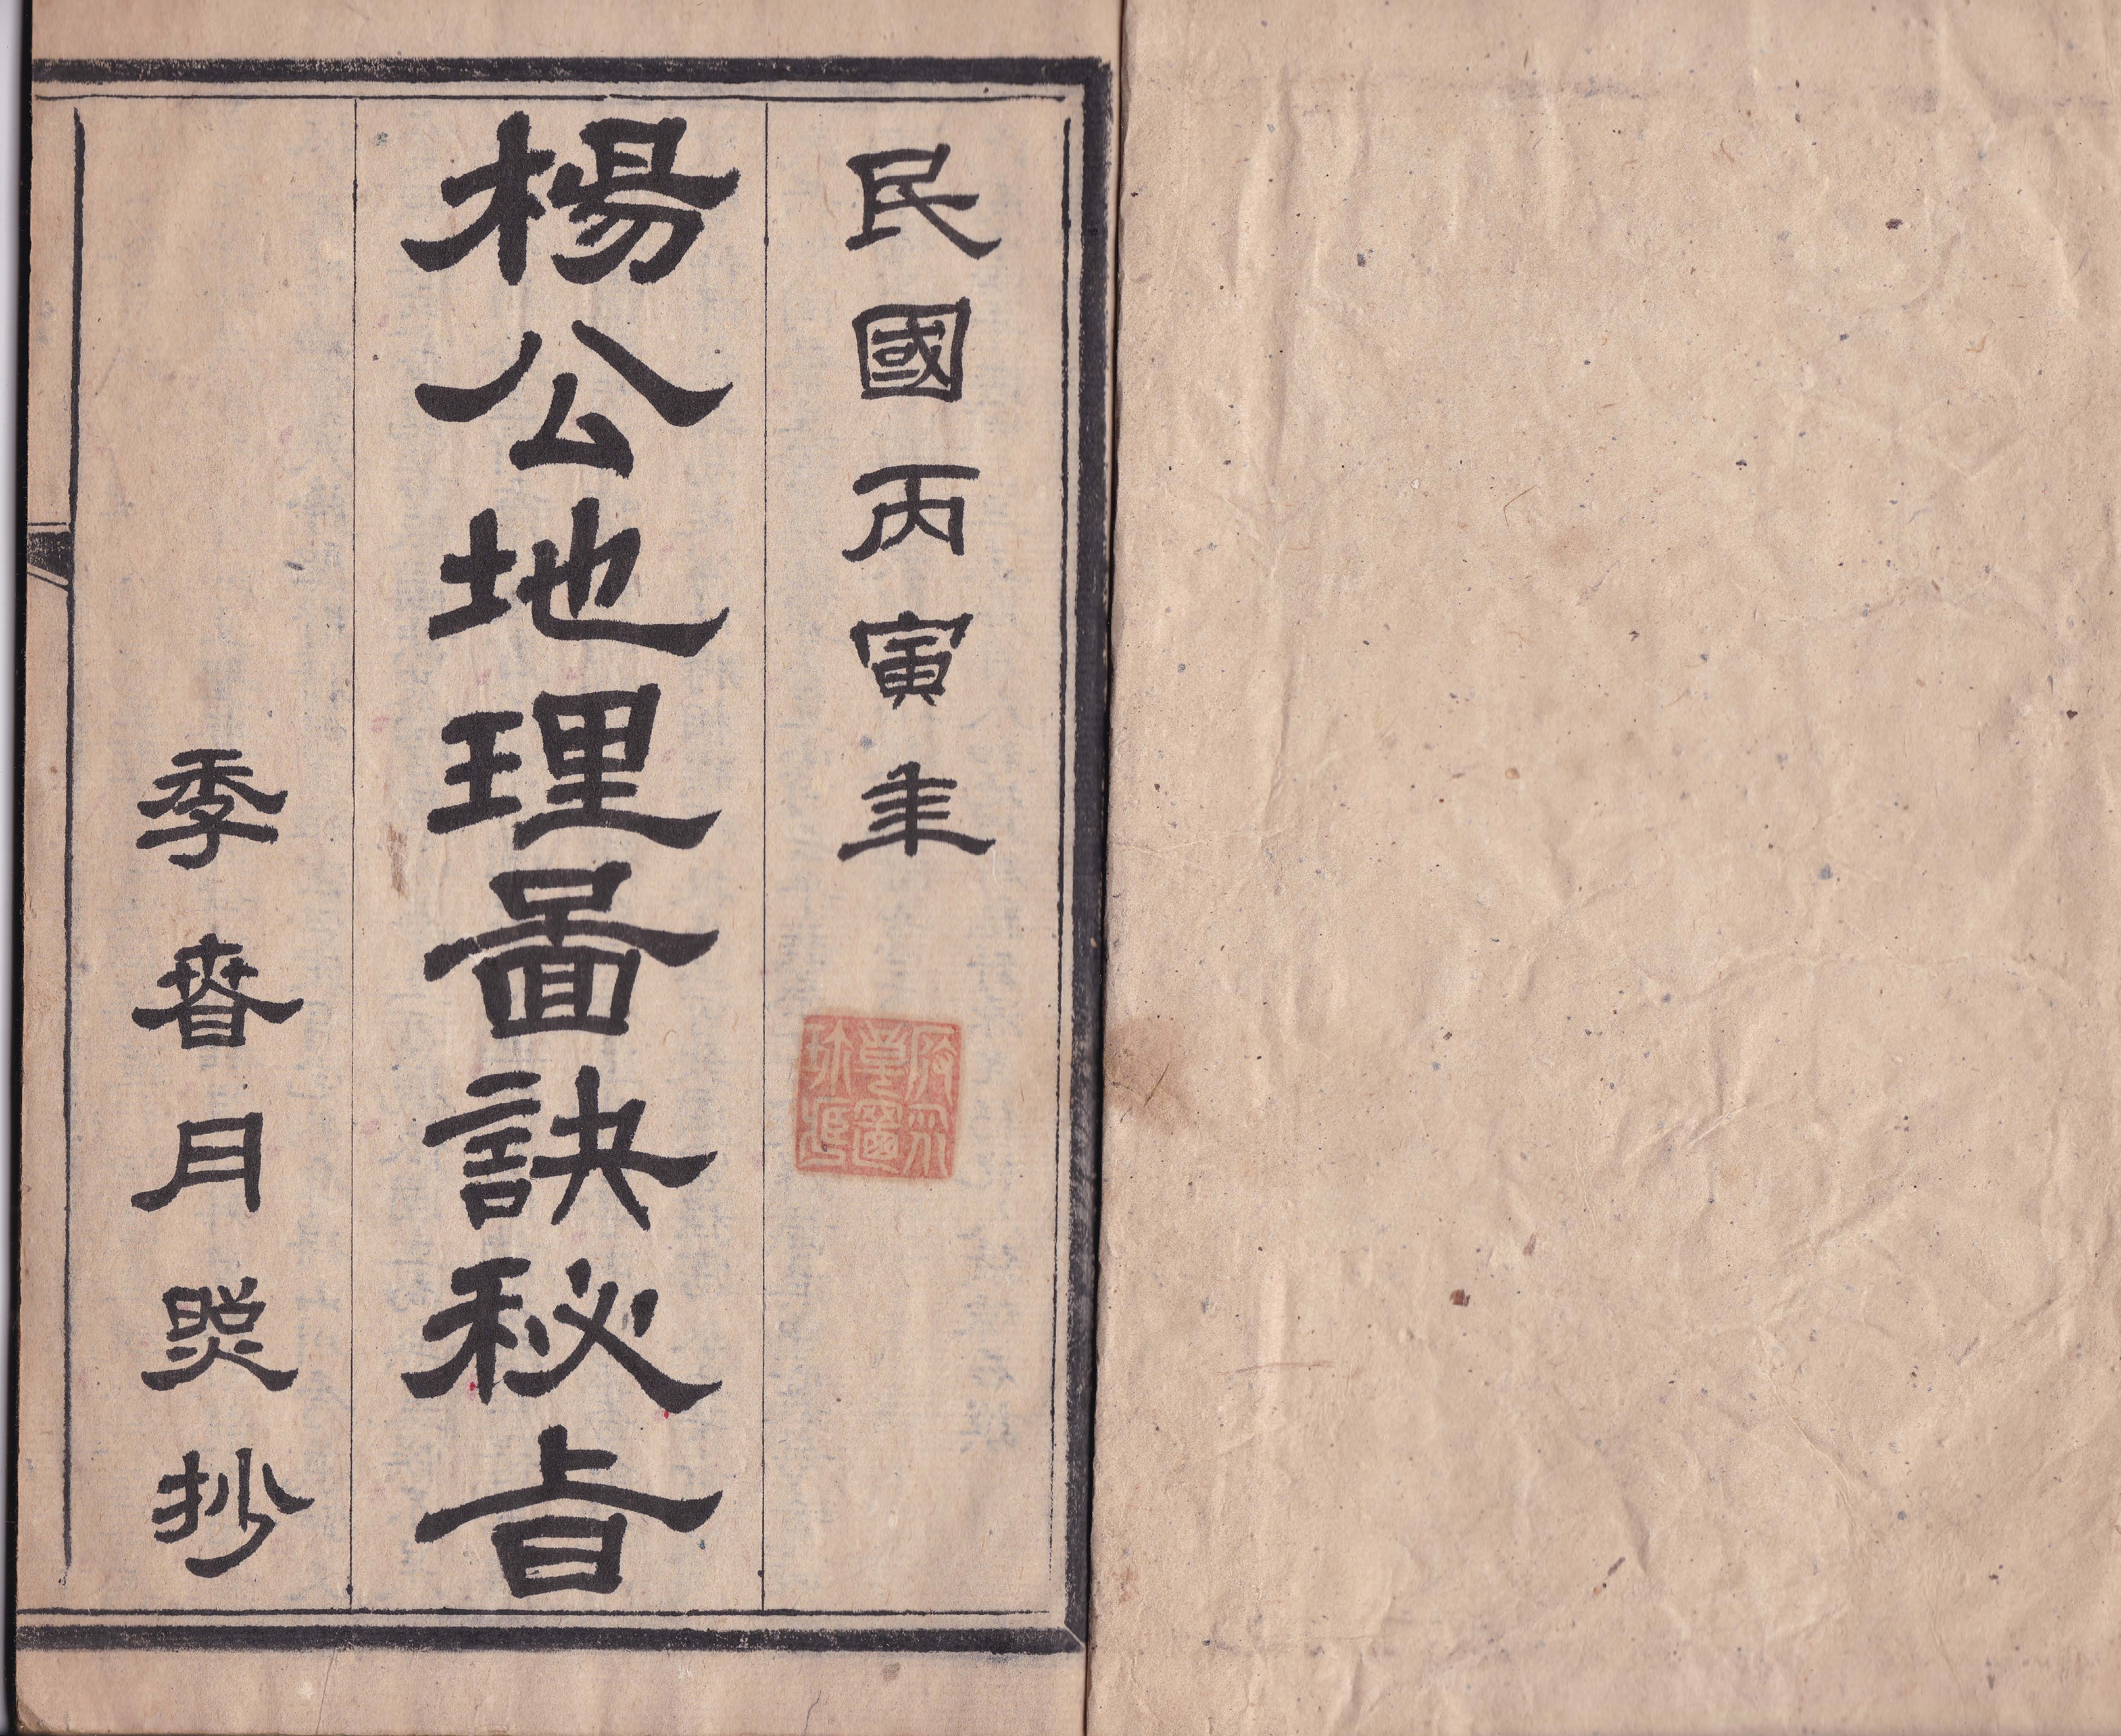 民國丙寅年
楊公地理啚訣秘旨
季春月煚抄